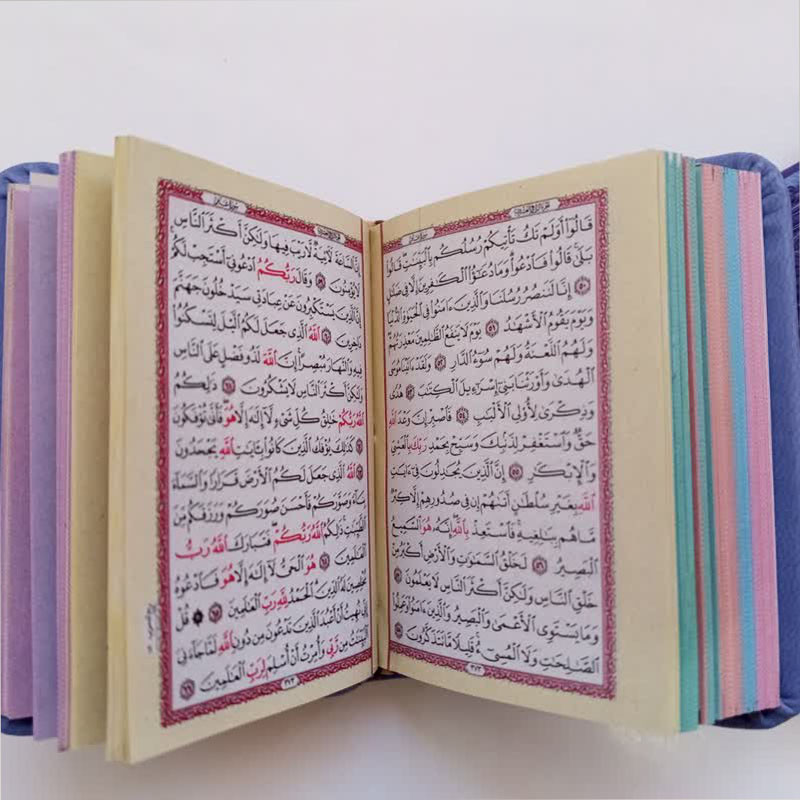 قَالُوٓا۟ أَوَلَمْ تَكُ تَأْتِيكُمْ رُسُلُكُم بِٱلْبَيِّنَـٰتِ قَالُوا۟
بَلَىٰ قَالُوا۟ فَٱدْعُوا۟ وَمَا دُعَـٰٓؤُا۟ ٱلْكَـٰفِرِينَ إِلَّا فِى ضَلَـٰلٍ
٥٠ إِنَّا لَنَنصُرُ رُسُلَنَا وَٱلَّذِينَ ءَامَنُوا۟ فِى ٱلْحَيَوٰةِ ٱلدُّنْيَا
وَيَوْمَ يَقُومُ ٱلْأَشْهَـٰدُ ٥١ يَوْمَ لَا يَنفَعُ ٱلظَّـٰلِمِينَ مَعْذِرَتُهُمْ
وَلَهُمُ ٱللَّعْنَةُ وَلَهُمْ سُوٓءُ ٱلدَّارِ ٥٢ وَلَقَدْ ءَاتَيْنَا مُوسَى
ٱلْهُدَىٰ وَأَوْرَثْنَا بَنِىٓ إِسْرَٰٓءِيلَ ٱلْكِتَـٰبَ ٥٣ هُدًى
وَذِكْرَىٰ لِأُو۟لِى ٱلْأَلْبَـٰبِ ٥٤ فَٱصْبِرْ إِنَّ وَعْدَ ٱللَّهِ
حَقٌّ وَٱسْتَغْفِرْ لِذَنۢبِكَ وَسَبِّحْ بِحَمْدِ رَبِّكَ بِٱلْعَشِىِّ
وَٱلْإِبْكَـٰرِ ٥٥ إِنَّ ٱلَّذِينَ يُجَـٰدِلُونَ فِىٓ ءَايَـٰتِ
ٱللَّهِ بِغَيْرِ سُلْطَـٰنٍ أَتَىٰهُمْ إِن فِى صُدُورِهِمْ إِلَّا كِبْرٌ
مَّا هُم بِبَـٰلِغِيهِ فَٱسْتَعِذْ بِٱللَّهِ إِنَّهُۥ هُوَ ٱلسَّمِيعُ
ٱلْبَصِيرُ ٥٦ لَخَلْقُ ٱلسَّمَـٰوَٰتِ وَٱلْأَرْضِ أَكْبَرُ مِنْ
خَلْقِ ٱلنَّاسِ وَلَـٰكِنَّ أَكْثَرَ ٱلنَّاسِ لَا يَعْلَمُونَ ٥٧
وَمَا يَسْتَوِى ٱلْأَعْمَىٰ وَٱلْبَصِيرُ وَٱلَّذِينَ ءَامَنُوا۟ وَعَمِلُوا۟
ٱلصَّـٰلِحَـٰتِ وَلَا ٱلْمُسِىٓءُ قَلِيلًا مَّا تَتَذَكَّرُونَ ٥٨
٤٧٣
إِنَّ ٱلسَّاعَةَ لَـَٔاتِيَةٌ لَّا رَيْبَ فِيهَا وَلَـٰكِنَّ أَكْثَرَ ٱلنَّاسِ
لَا يُؤْمِنُونَ ٥٩ وَقَالَ رَبُّكُمُ ٱدْعُونِىٓ أَسْتَجِبْ لَكُمْ
إِنَّ ٱلَّذِينَ يَسْتَكْبِرُونَ عَنْ عِبَادَتِى سَيَدْخُلُونَ جَهَنَّمَ
دَاخِرِينَ ٦٠ ٱللَّهُ ٱلَّذِى جَعَلَ لَكُمُ ٱلَّيْلَ لِتَسْكُنُوا۟
فِيهِ وَٱلنَّهَارَ مُبْصِرًا إِنَّ ٱللَّهَ لَذُو فَضْلٍ عَلَى ٱلنَّاسِ
وَلَـٰكِنَّ أَكْثَرَ ٱلنَّاسِ لَا يَشْكُرُونَ ٦١ ذَٰلِكُمُ
ٱللَّهُ رَبُّكُمْ خَـٰلِقُ كُلِّ شَىْءٍ لَّآ إِلَـٰهَ إِلَّا هُوَ فَأَنَّىٰ تُؤْفَكُونَ
٦٢ كَذَٰلِكَ يُؤْفَكُ ٱلَّذِينَ كَانُوا۟ بِـَٔايَـٰتِ ٱللَّهِ يَجْحَدُونَ
٦٣ ٱللَّهُ ٱلَّذِى جَعَلَ لَكُمُ ٱلْأَرْضَ قَرَارًا وَٱلسَّمَآءَ
بِنَآءً وَصَوَّرَكُمْ فَأَحْسَنَ صُوَرَكُمْ وَرَزَقَكُم مِّنَ
ٱلطَّيِّبَـٰتِ ذَٰلِكُمُ ٱللَّهُ رَبُّكُمْ فَتَبَارَكَ ٱللَّهُ رَبُّ
ٱلْعَـٰلَمِينَ ٦٤ هُوَ ٱلْحَىُّ لَآ إِلَـٰهَ إِلَّا هُوَ فَٱدْعُوهُ
مُخْلِصِينَ لَهُ ٱلدِّينَ ٱلْحَمْدُ لِلَّهِ رَبِّ ٱلْعَـٰلَمِينَ ٦٥ قُلْ
إِنِّى نُهِيتُ أَنْ أَعْبُدَ ٱلَّذِينَ تَدْعُونَ مِن دُونِ ٱللَّهِ لَمَّا جَآءَنِىَ
ٱلْبَيِّنَـٰتُ مِن رَّبِّى وَأُمِرْتُ أَنْ أُسْلِمَ لِرَبِّ ٱلْعَـٰلَمِينَ ٦٦
٤٧٤